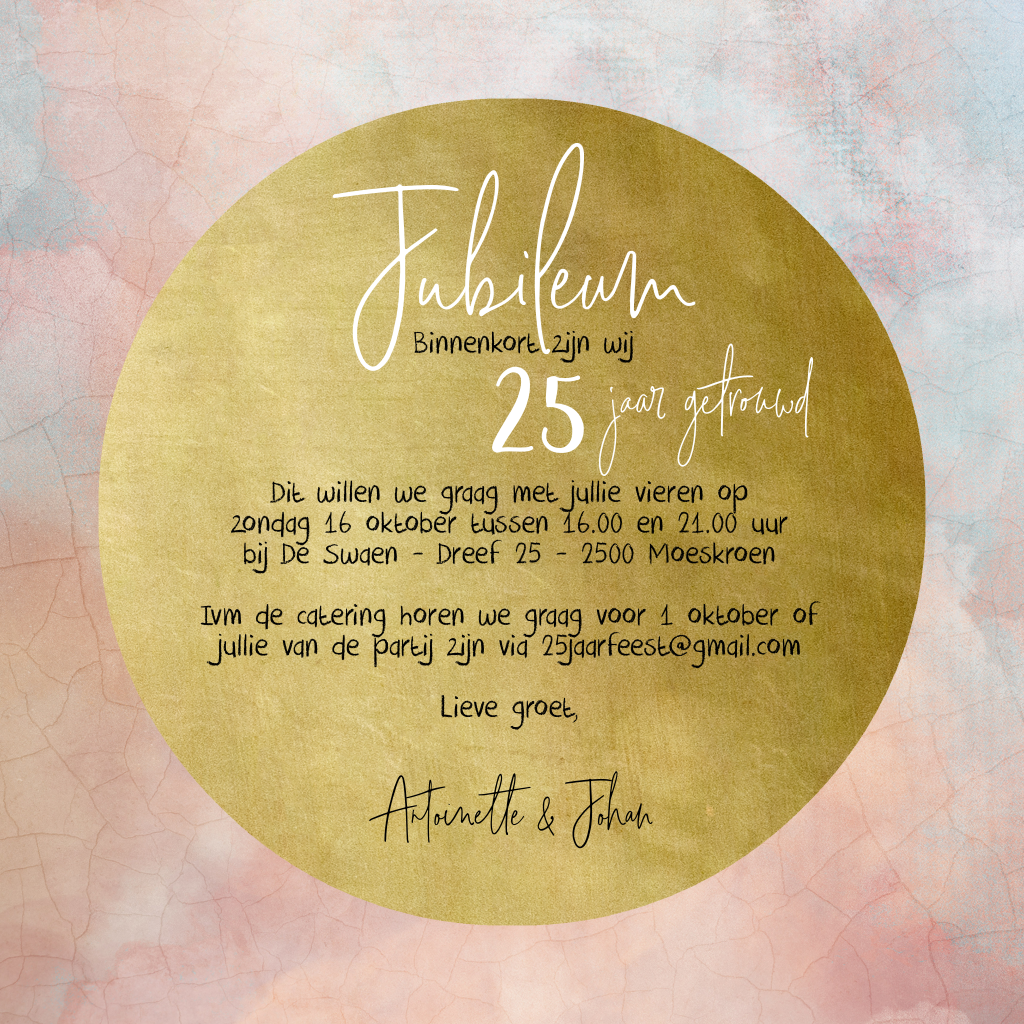 Jubileum
Binnenkort zijn wij
25 jaar getrouwd
Dit willen we graag met jullie vieren op
zondag 16 oktober tussen 16.00 en 21.00 uur
bij De Swaen - Dreef 25 - 2500 Moeskroen
Ivm de catering horen we graag voor 1 oktober of
jullie van de partij zijn via 25jaarfeest@gmail.com
Lieve groet,
Antoinette & Johan